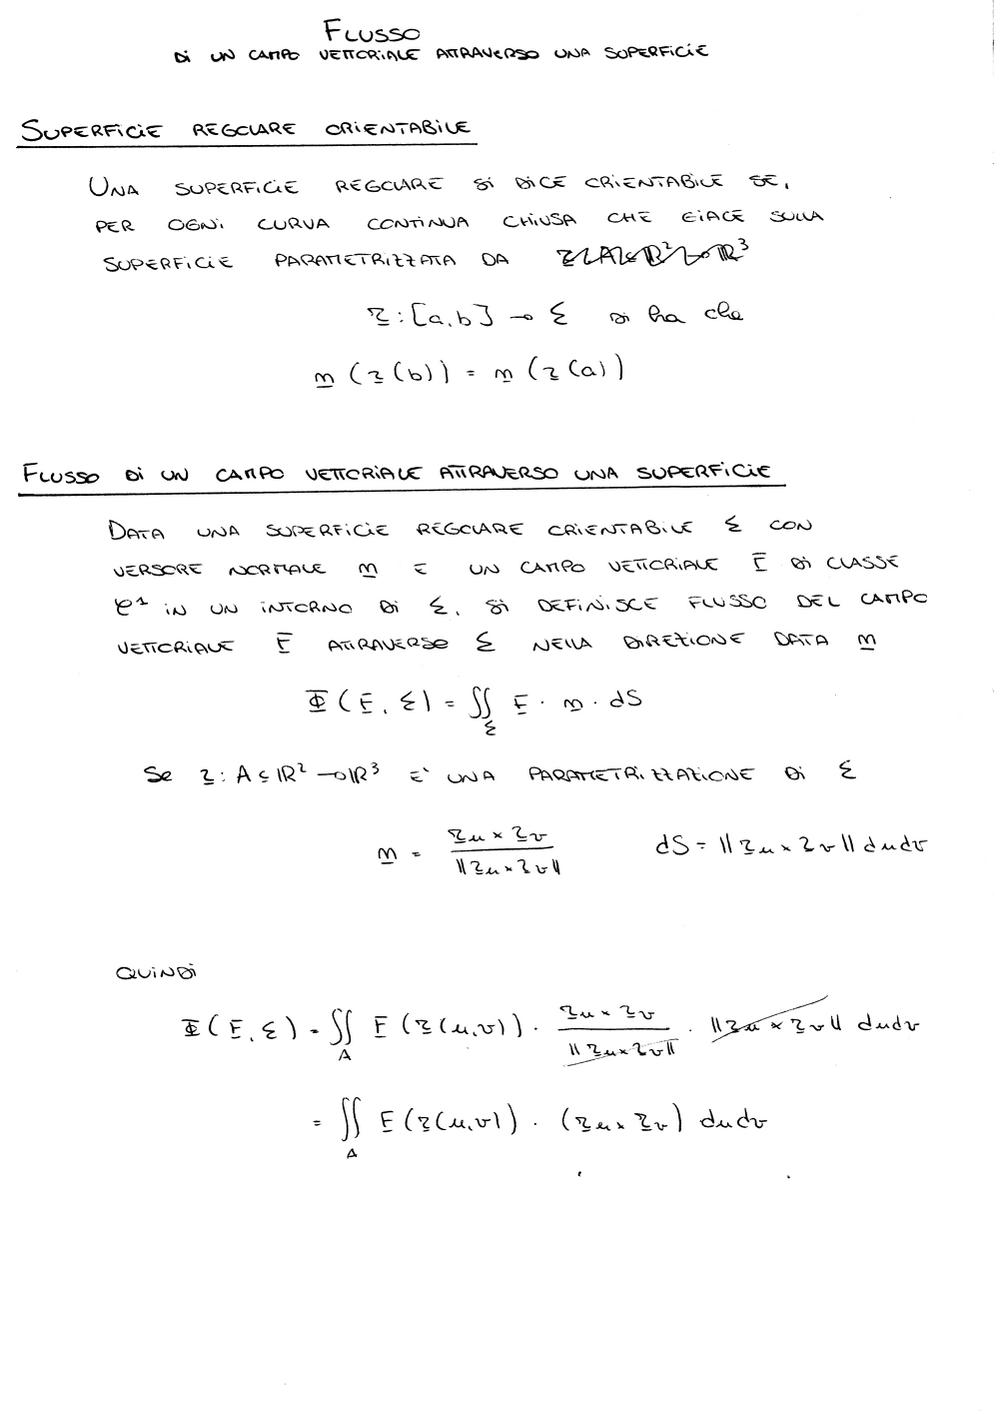 FLUSSO
DI UN CAMPO VETTORIALE ATTRAVERSO UNA SUPERFICIE
SUPERFICIE REGOLARE ORIENTABILE
UNA SUPERFICIE REGOLARE SI DICE ORIENTABILE SE,
PER OGNI CURVA CONTINUA CHIUSA CHE GIACE SULLA
SUPERFICIE PARAMETRIZZATA DA
r : [a,b] → Σ si ha che
n (r(b)) = n (r(a))
FLUSSO DI UN CAMPO VETTORIALE ATTRAVERSO UNA SUPERFICIE
DATA UNA SUPERFICIE REGOLARE ORIENTABILE Σ CON
VERSORE NORMALE n E UN CAMPO VETTORIALE F DI CLASSE
C¹ IN UN INTORNO DI Σ, SI DEFINISCE FLUSSO DEL CAMPO
VETTORIALE F ATTRAVERSO Σ NELLA DIREZIONE DATA n
Φ(F, Σ) = ∬_Σ F · n · dS
Se r : A ⊆ ℝ² → ℝ³ E' UNA PARAMETRIZZAZIONE DI Σ
n = (r_u × r_v) / ||r_u × r_v|| dS = ||r_u × r_v|| du dv
QUINDI
Φ(F, Σ) = ∬_A F(r(u,v)) · (r_u × r_v) / ||r_u × r_v|| · ||r_u × r_v|| du dv
= ∬_A F(r(u,v)) · (r_u × r_v) du dv